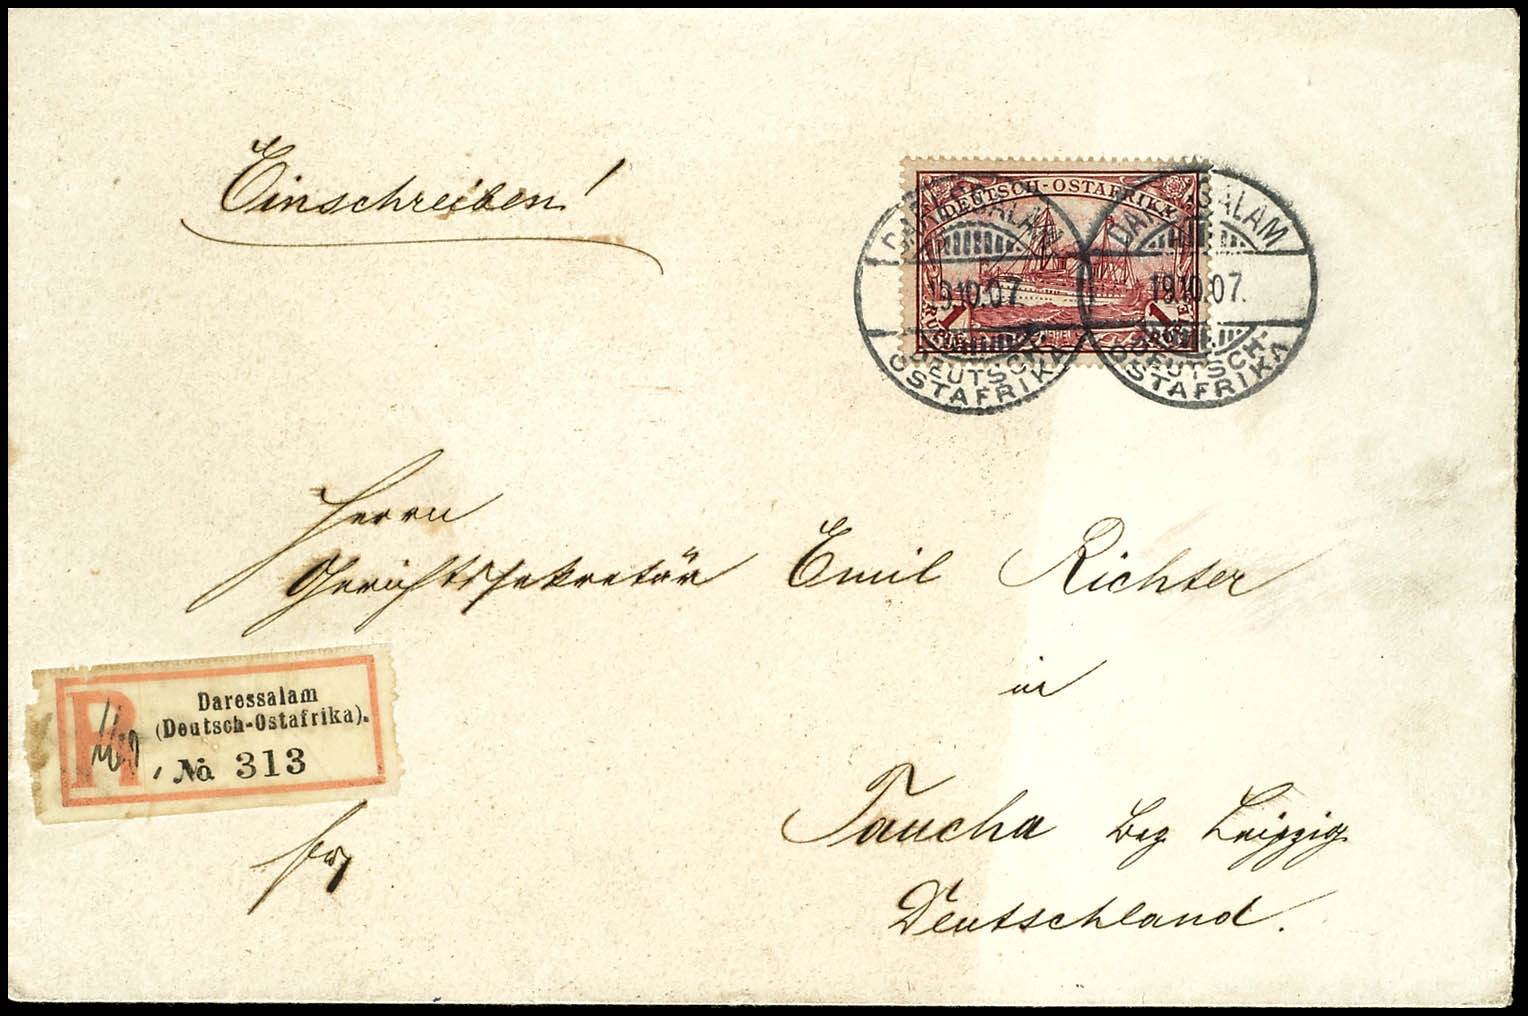 Einschreiben!
DEUTSCH-OSTAFRIKA
1 RUPIE
1 RUPIE
DARESSALAM
19.10.07.
DEUTSCH-
OSTAFRIKA
DARESSALAM
19.10.07.
DEUTSCH-
OSTAFRIKA
Herrn
Gerichtssekretär Emil Richter
in
Taucha Bez Leipzig
Deutschland.
R
Daressalam
(Deutsch-Ostafrika).
No 313